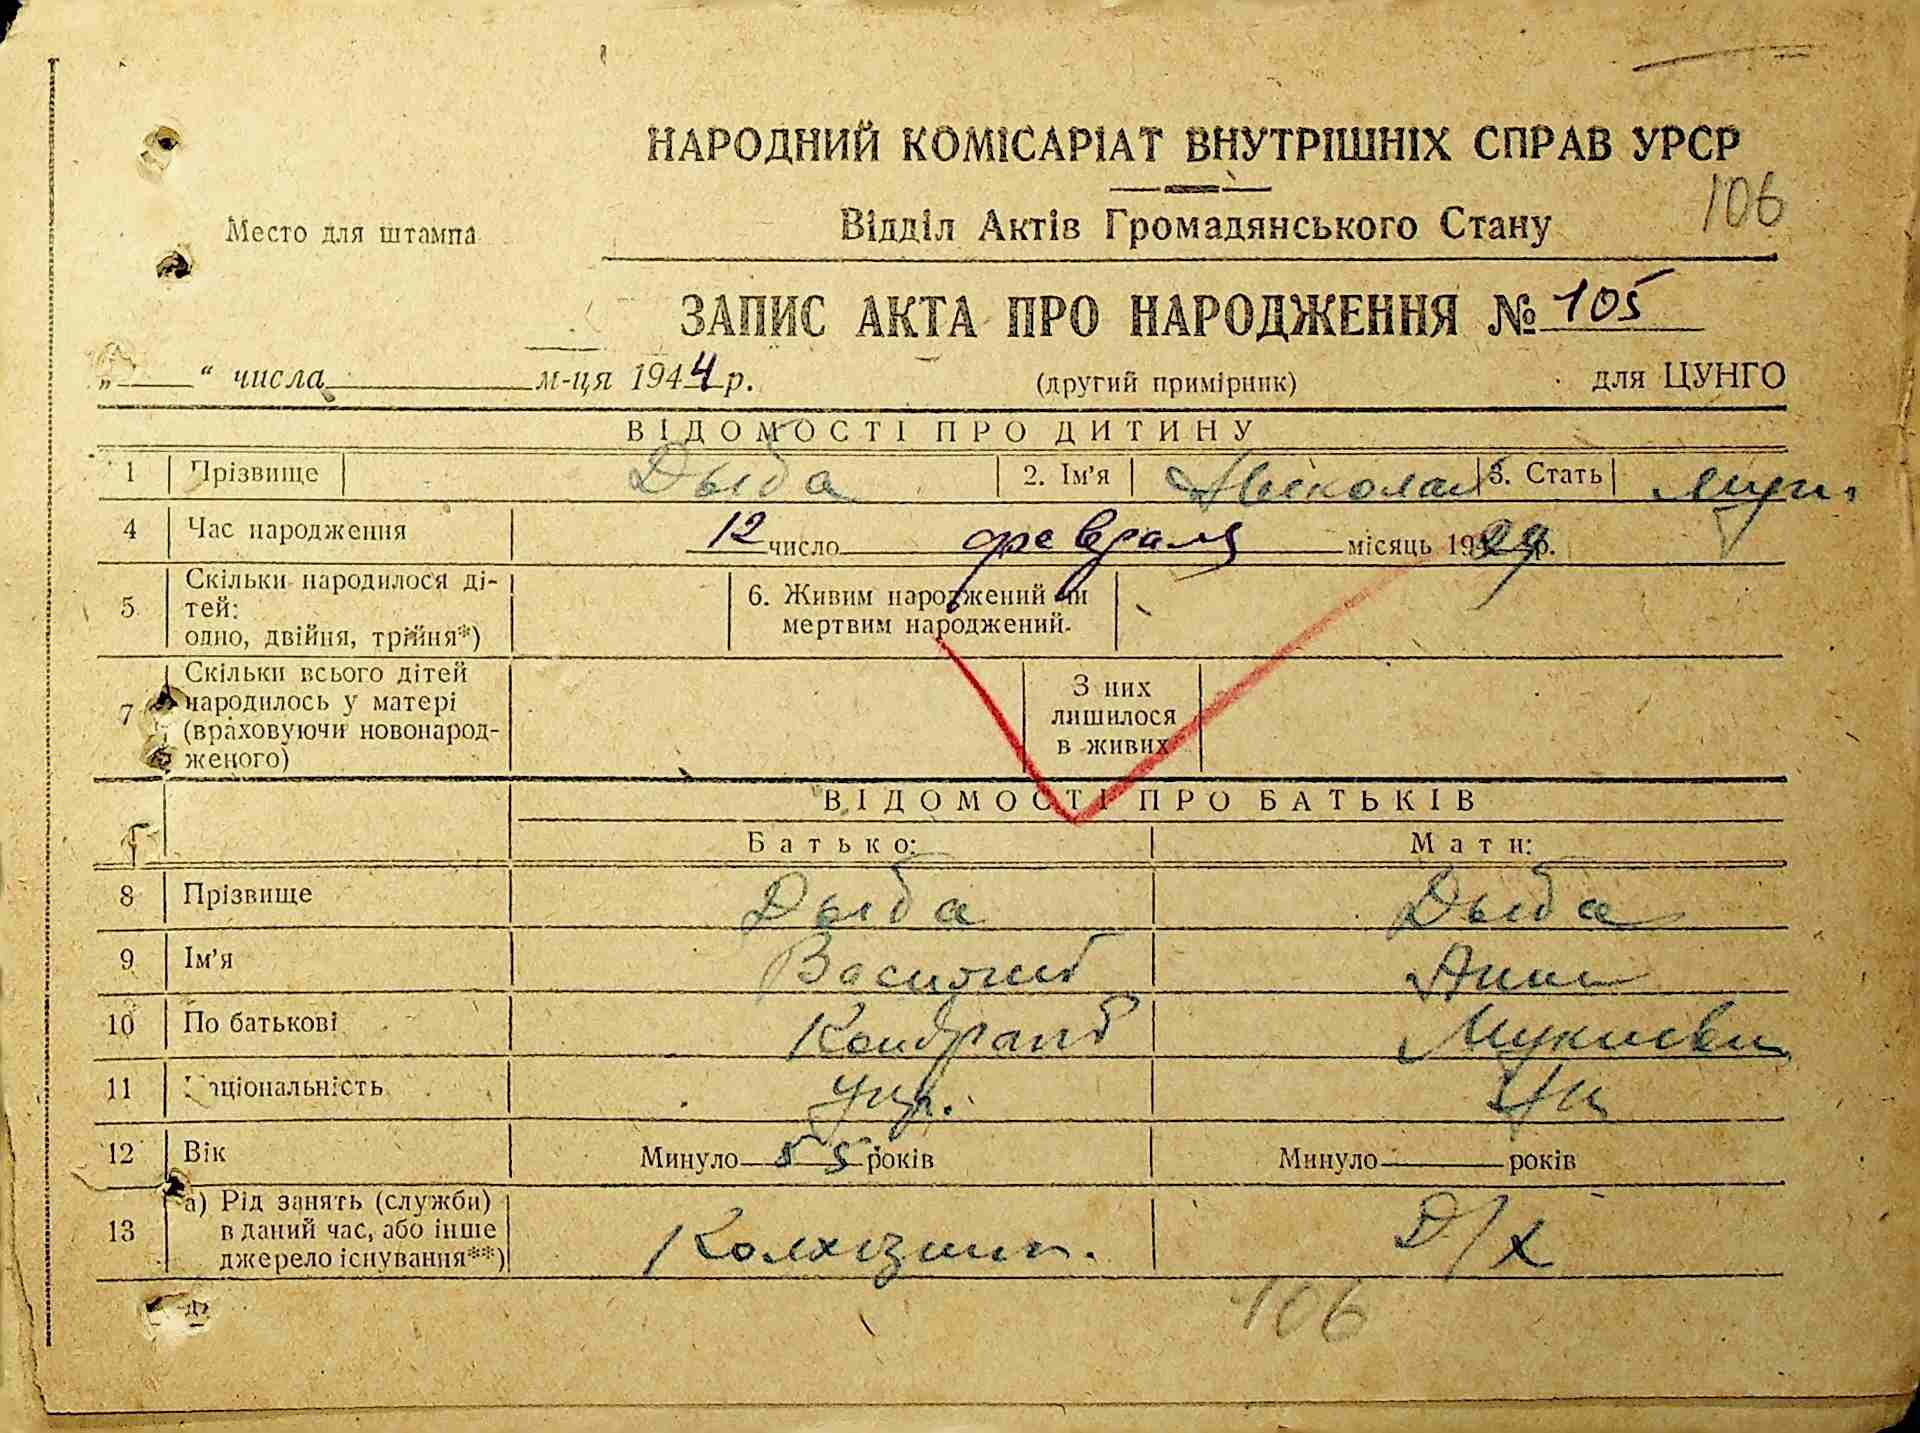 НАРОДНИЙ КОМІСАРІАТ ВНУТРІШНІХ СПРАВ УРСР
106
Место для штампа
Відділ Актів Громадянського Стану
ЗАПИС АКТА ПРО НАРОДЖЕННЯ № 105
„ “ числа м-ця 1944 р. (другий примірник) для ЦУНГО
ВІДОМОСТІ ПРО ДИТИНУ
1 Прізвище Дыба 2. Ім'я Николай 3. Стать муж.
4 Час народження 12 число февраля місяць 1929 р.
5 Скільки народилося ді-
тей:
одно, двійня, трійня*)
6. Живим народжений чи
мертвим народжений.
7 Скільки всього дітей
народилось у матері
(враховуючи новонарод-
женого)
З них
лишилося
в живих
ВІДОМОСТІ ПРО БАТЬКІВ
Батько: Мати:
8 Прізвище Дыба Дыба
9 Ім'я Василий Анна
10 По батькові Кондрат
11 Національність Укр. Ук
12 Вік Минуло 55 років Минуло років
13 а) Рід занять (служби)
в даний час, або інше
джерело існування**)
Колхозник. Д/х
106